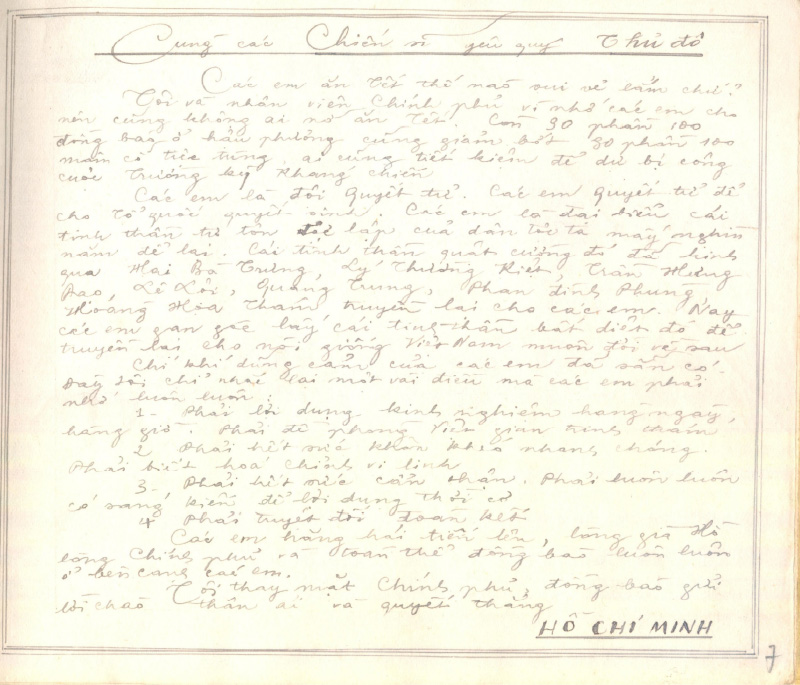 Cung các Chiến sĩ yêu quý Thủ đô
Các em ăn Tết thế nào vui vẻ lắm chứ?
Tôi và nhân viên Chính phủ vì nhớ các em cho
nên cũng không ai nỡ ăn Tết. Còn 90 phần 100
đồng bào ở hậu phương cũng giảm bớt 90 phần 100
mâm cỗ tiệc tùng, ai cũng tiết kiệm để dự bị công
cuộc trường kỳ kháng chiến
Các em là đội Quyết tử. Các em quyết tử để
cho Tổ quốc quyết sinh. Các em là đại biểu cái
tinh thần tự tôn độc lập của dân tộc ta mấy nghìn
năm để lại. Cái tinh thần quật cường đó đã kinh
qua Hai Bà Trưng, Lý Thường Kiệt, Trần Hưng
Đạo, Lê Lợi, Quang Trung, Phan đình Phùng,
Hoàng Hoa Thám truyền lại cho các em. Nay
các em gan góc lấy cái tinh thần bất diệt đó để
truyền lại cho nòi giống Việt Nam muôn đời về sau
Chí khí dũng cảm của các em đã sẵn có.
Đây tôi chỉ nhắc lại một vài điều mà các em phải
nhớ luôn luôn:
1- Phải lợi dụng kinh nghiệm hàng ngày,
hàng giờ. Phải đề phòng Việt gian trinh thám
2 Phải hết sức khôn khéo nhanh chóng.
Phải biết hoá chỉnh vi linh
3- Phải hết sức cẩn thận. Phải luôn luôn
có sáng kiến để lợi dụng thời cơ
4 Phải tuyệt đối đoàn kết
Các em hăng hái tiến lên, lòng già Hồ
lòng Chính phủ và toàn thể đồng bào luôn luôn
ở bên cạnh các em.
Tôi thay mặt Chính phủ, đồng bào gửi
lời chào thân ái và quyết thắng
HỒ CHÍ MINH
7